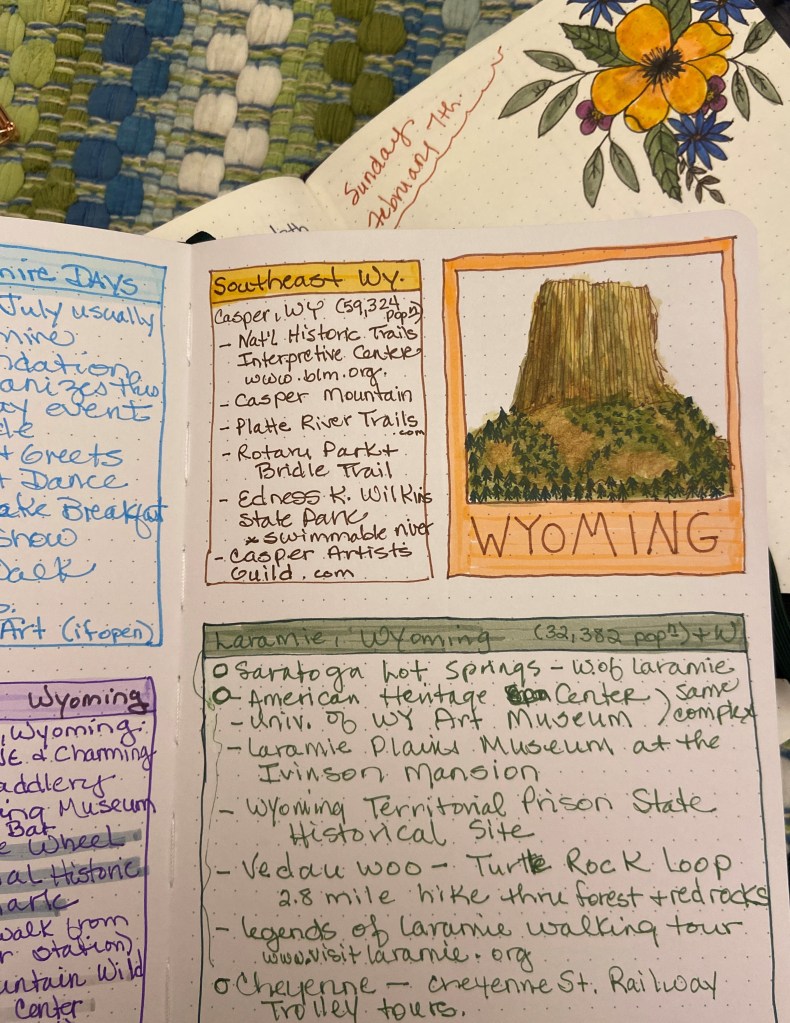 Sunday
February 7th.
nire DAYS
July usually
nire
ndation
anizes this
ay event
de
+ Greets
+ Dance
ake Breakfast
show
Walk
o:
Art (if open)
Wyoming
, Wyoming:
& Charming
addlery
ing Museum
Bar
e Wheel
al Historic
ark
walk from
r station)
untain Wild
Center
Southeast Wy.
Casper, WY (59,324 popⁿ)
- Nat'l Historic Trails
Interpretive Center
www.blm.org.
- Casper Mountain
- Platte River Trails
.com
- Rotary Park +
Bridle Trail
- Edness K. Wilkins
State Park
* swimmable river
- Casper Artists
Guild.com
WYOMING
Laramie, Wyoming (32,382 popⁿ) + W
o Saratoga hot springs - W. of Laramie
o American Heritage Center ) same
- Univ. of WY Art Museum ) complex
- Laramie Plains Museum at the
Ivinson Mansion
- Wyoming Territorial Prison State
Historical Site
- Vedau woo - Turtle Rock Loop
2.8 mile hike thru forest + red rocks
- legends of Laramie walking tour
www.visitlaramie.org
o Cheyenne - Cheyenne St. Railway
Trolley tours.